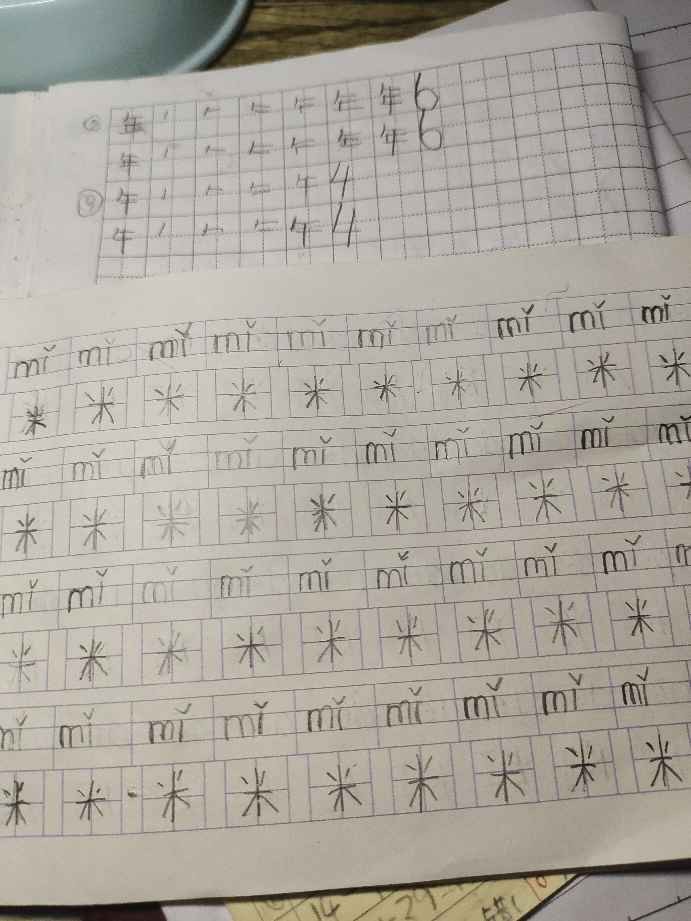 ⑥ 年 丿 𠂉 𠂉 午 年 6
年 丿 𠂉 年 年 6
⑨ 午 丿 𠂉 午 4
午 丿 𠂉 午 4
mǐ mǐ mǐ mǐ mǐ mǐ mǐ mǐ mǐ mǐ
米 米 米 米 米 米 米 米 米 米
mǐ mǐ mǐ mǐ mǐ mǐ mǐ mǐ mǐ mǐ
米 米 米 米 米 米 米 米 米
mǐ mǐ mǐ mǐ mǐ mǐ mǐ mǐ mǐ
米 米 米 米 米 米 米 米 米
mǐ mǐ mǐ mǐ mǐ mǐ mǐ mǐ mǐ
米 米 米 米 米 米 米 米 米
14 29